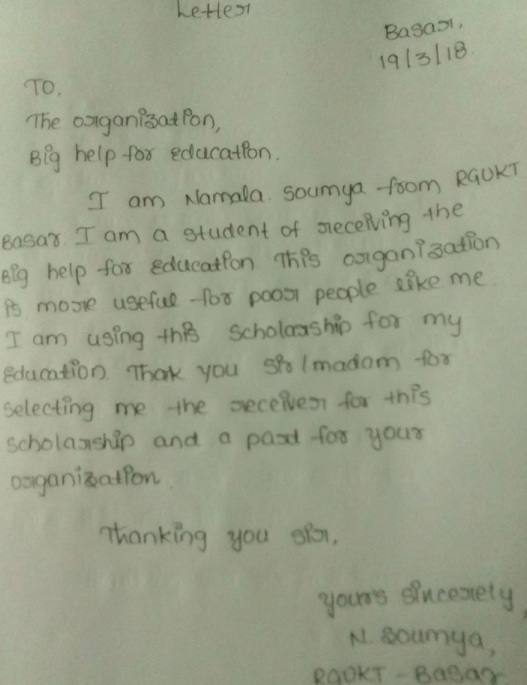 Letter
Basar,
19/3/18.
TO,
The organization,
Big help for education.
I am Namala. Soumya from RGUKT
Basar. I am a student of receiving the
Big help for Education This organization
is more useful for poor people like me.
I am using this scholarship for my
education. Thank you sir/madam for
selecting me the receiver for this
scholarship and a part for your
organization.
Thanking you sir,
yours sincerely,
N. Soumya,
RGUKT - Basar